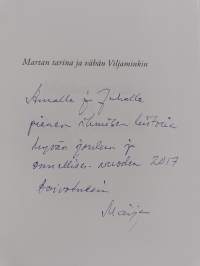 Martan tarina ja vähän Viljaminkin
Annalle ja Juhalle
pienen ihmisen historia
hyvän joulun ja
onnellisen vuoden 2017
toivotuksin
Marja